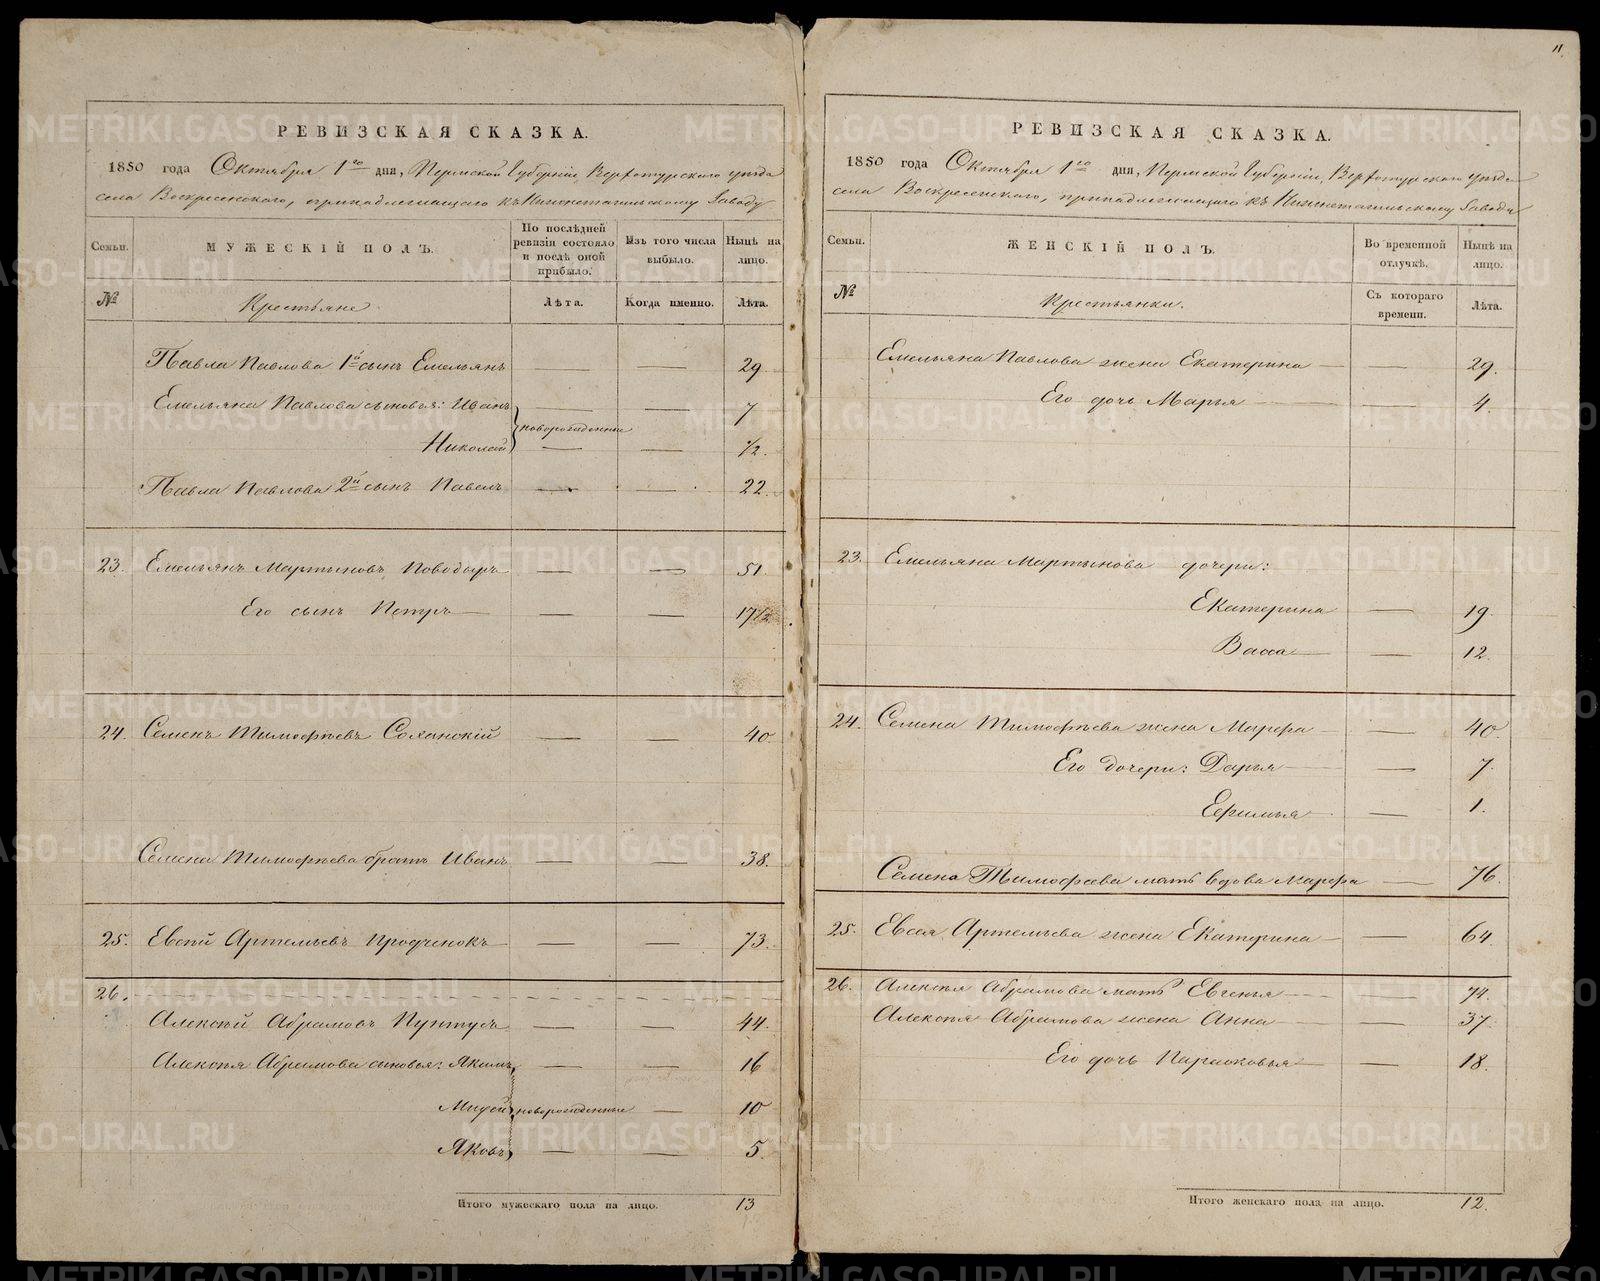 11.
РЕВИЗСКАЯ СКАЗКА.
1850 года Октября 1го дня, Пермской Губерніи, Верхотурского уѣзда
села Воскресенского, принадлежащаго къ Нижнетагильскому Заводу
Семьи. МУЖЕСКІЙ ПОЛЪ. По послѣдней ревизіи состояло и послѣ оной прибыло. Изъ того числа выбыло. Нынѣ на лицо.
№ Крестьяне Лѣта. Когда именно. Лѣта.
Павла Павлова 1й сынъ Емельянъ — — 29
Емельяна Павлова сыновья: Иванъ — — 7
новорожденные
Николай — — 1/2.
Павла Павлова 2й сынъ Павелъ — — 22.
23. Емельянъ Мартыновъ Поводыръ — — 51.
Его сынъ Петръ — — 17 1/2
24. Семенъ Тимофѣевъ Солянскій — — 40.
Семена Тимофѣева братъ Иванъ — — 38.
25. Евсѣй Артемьевъ — — 73.
26.
Алексѣй Абрамовъ Пунтусъ — — 44.
Алексѣя Абрамова сыновья: Якимъ — — 16
новорожденные — 10
Яковъ — — 5.
Итого мужескаго пола на лицо. 13
РЕВИЗСКАЯ СКАЗКА.
1850 года Октября 1го дня, Пермской Губерніи, Верхотурского уѣзда
села Воскресенского, принадлежащаго къ Нижнетагильскому Заводу
Семьи. ЖЕНСКІЙ ПОЛЪ. Во временной отлучкѣ. Нынѣ на лицо.
№ Крестьянки. Съ котораго времени. Лѣта.
Емельяна Павлова жена Екатерина — — 29.
Его дочь Марья — — 4.
23. Емельяна Мартынова дочери:
Екатерина — 19.
Васса — — 12.
24. Семена Тимофѣева жена Марфа — — 40.
Его дочери: Дарья — — 7.
Ефимья — — 1.
Семена Тимофеева мать вдова Марфа — 76.
25. Евсея Артемьева жена Екатерина — — 64.
26. Алексѣя Абрамова мать Евгенья — — 74.
Алексѣя Абрамова жена Анна — — 37.
Его дочь Парасковья — — 18.
Итого женскаго пола на лицо. 12.
METRIKI.GASO-URAL.RU